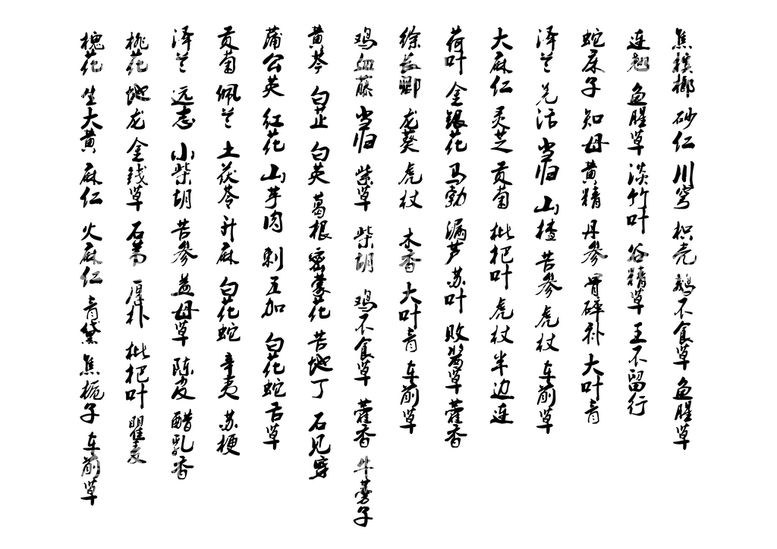 焦槟榔 砂仁 川穹 枳壳 鹅不食草 鱼腥草
连翘 鱼腥草 淡竹叶 谷精草 王不留行
蛇床子 知母 黄精 丹参 骨碎补 大叶青
泽兰 羌活 当归 山楂 苦参 虎杖 车前草
大麻仁 灵芝 贡菊 枇杷叶 虎杖 半边连
荷叶 金银花 马勃 漏芦 苏叶 败酱草 藿香
徐长卿 龙葵 虎杖 木香 大叶青 车前草
鸡血藤 当归 紫草 柴胡 鸡不食草 藿香 牛蒡子
黄芩 白芷 白英 葛根 密蒙花 苦地丁 石见穿
蒲公英 红花 山芋肉 刺五加 白花蛇舌草
贡菊 佩兰 土茯苓 升麻 白花蛇 辛夷 苏梗
泽兰 远志 小柴胡 苦参 益母草 陈皮 醋乳香
桃花 地龙 金钱草 石苇 厚朴 枇杷叶 瞿麦
槐花 生大黄 麻仁 火麻仁 青黛 焦栀子 车前草